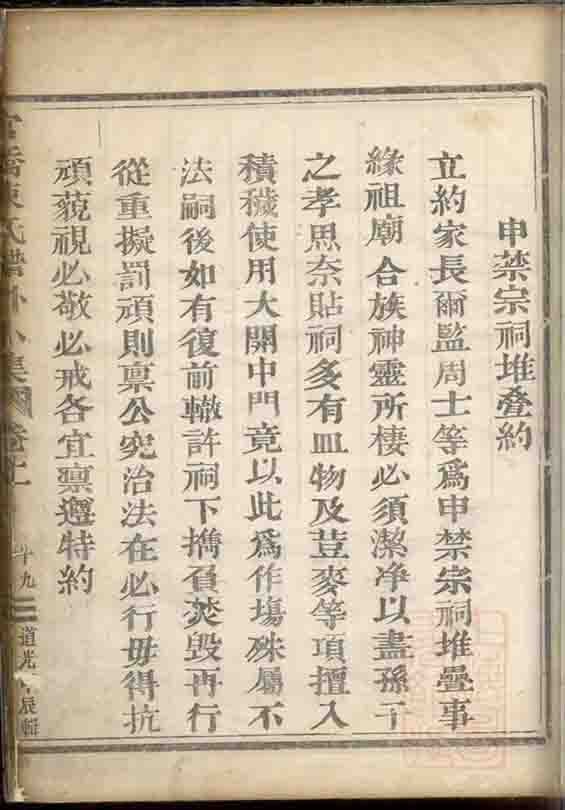 申禁宗祠堆叠約
立約家長爾監周士等爲申禁宗祠堆疊事
緣祖廟合族神靈所棲必須潔净以盡孫子
之孝思奈貼祠多有皿物及荳麥等項擅入
積穢使用大開中門竟以此爲作塲殊屬不
法嗣後如有復前轍許祠下擕負焚毁再行
從重擬罰頑則禀公究治法在必行毋得抗
頑藐視必敬必戒各宜禀遵特約
氏譜外集 卷十
十九
道光 辰輯